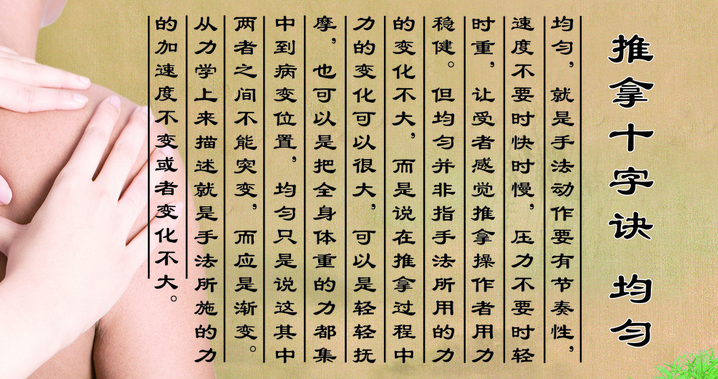 推拿十字诀 均匀
均匀，就是手法动作要有节奏性，
速度不要时快时慢，压力不要时轻
时重，让受者感觉推拿操作者用力
稳健。但均匀并非指手法所用的力
的变化不大，而是说在推拿过程中
力的变化可以很大，可以是轻轻抚
摩，也可以是把全身体重的力都集
中到病变位置，均匀只是说这其中
两者之间不能突变，而应是渐变。
从力学上来描述就是手法所施的力
的加速度不变或者变化不大。